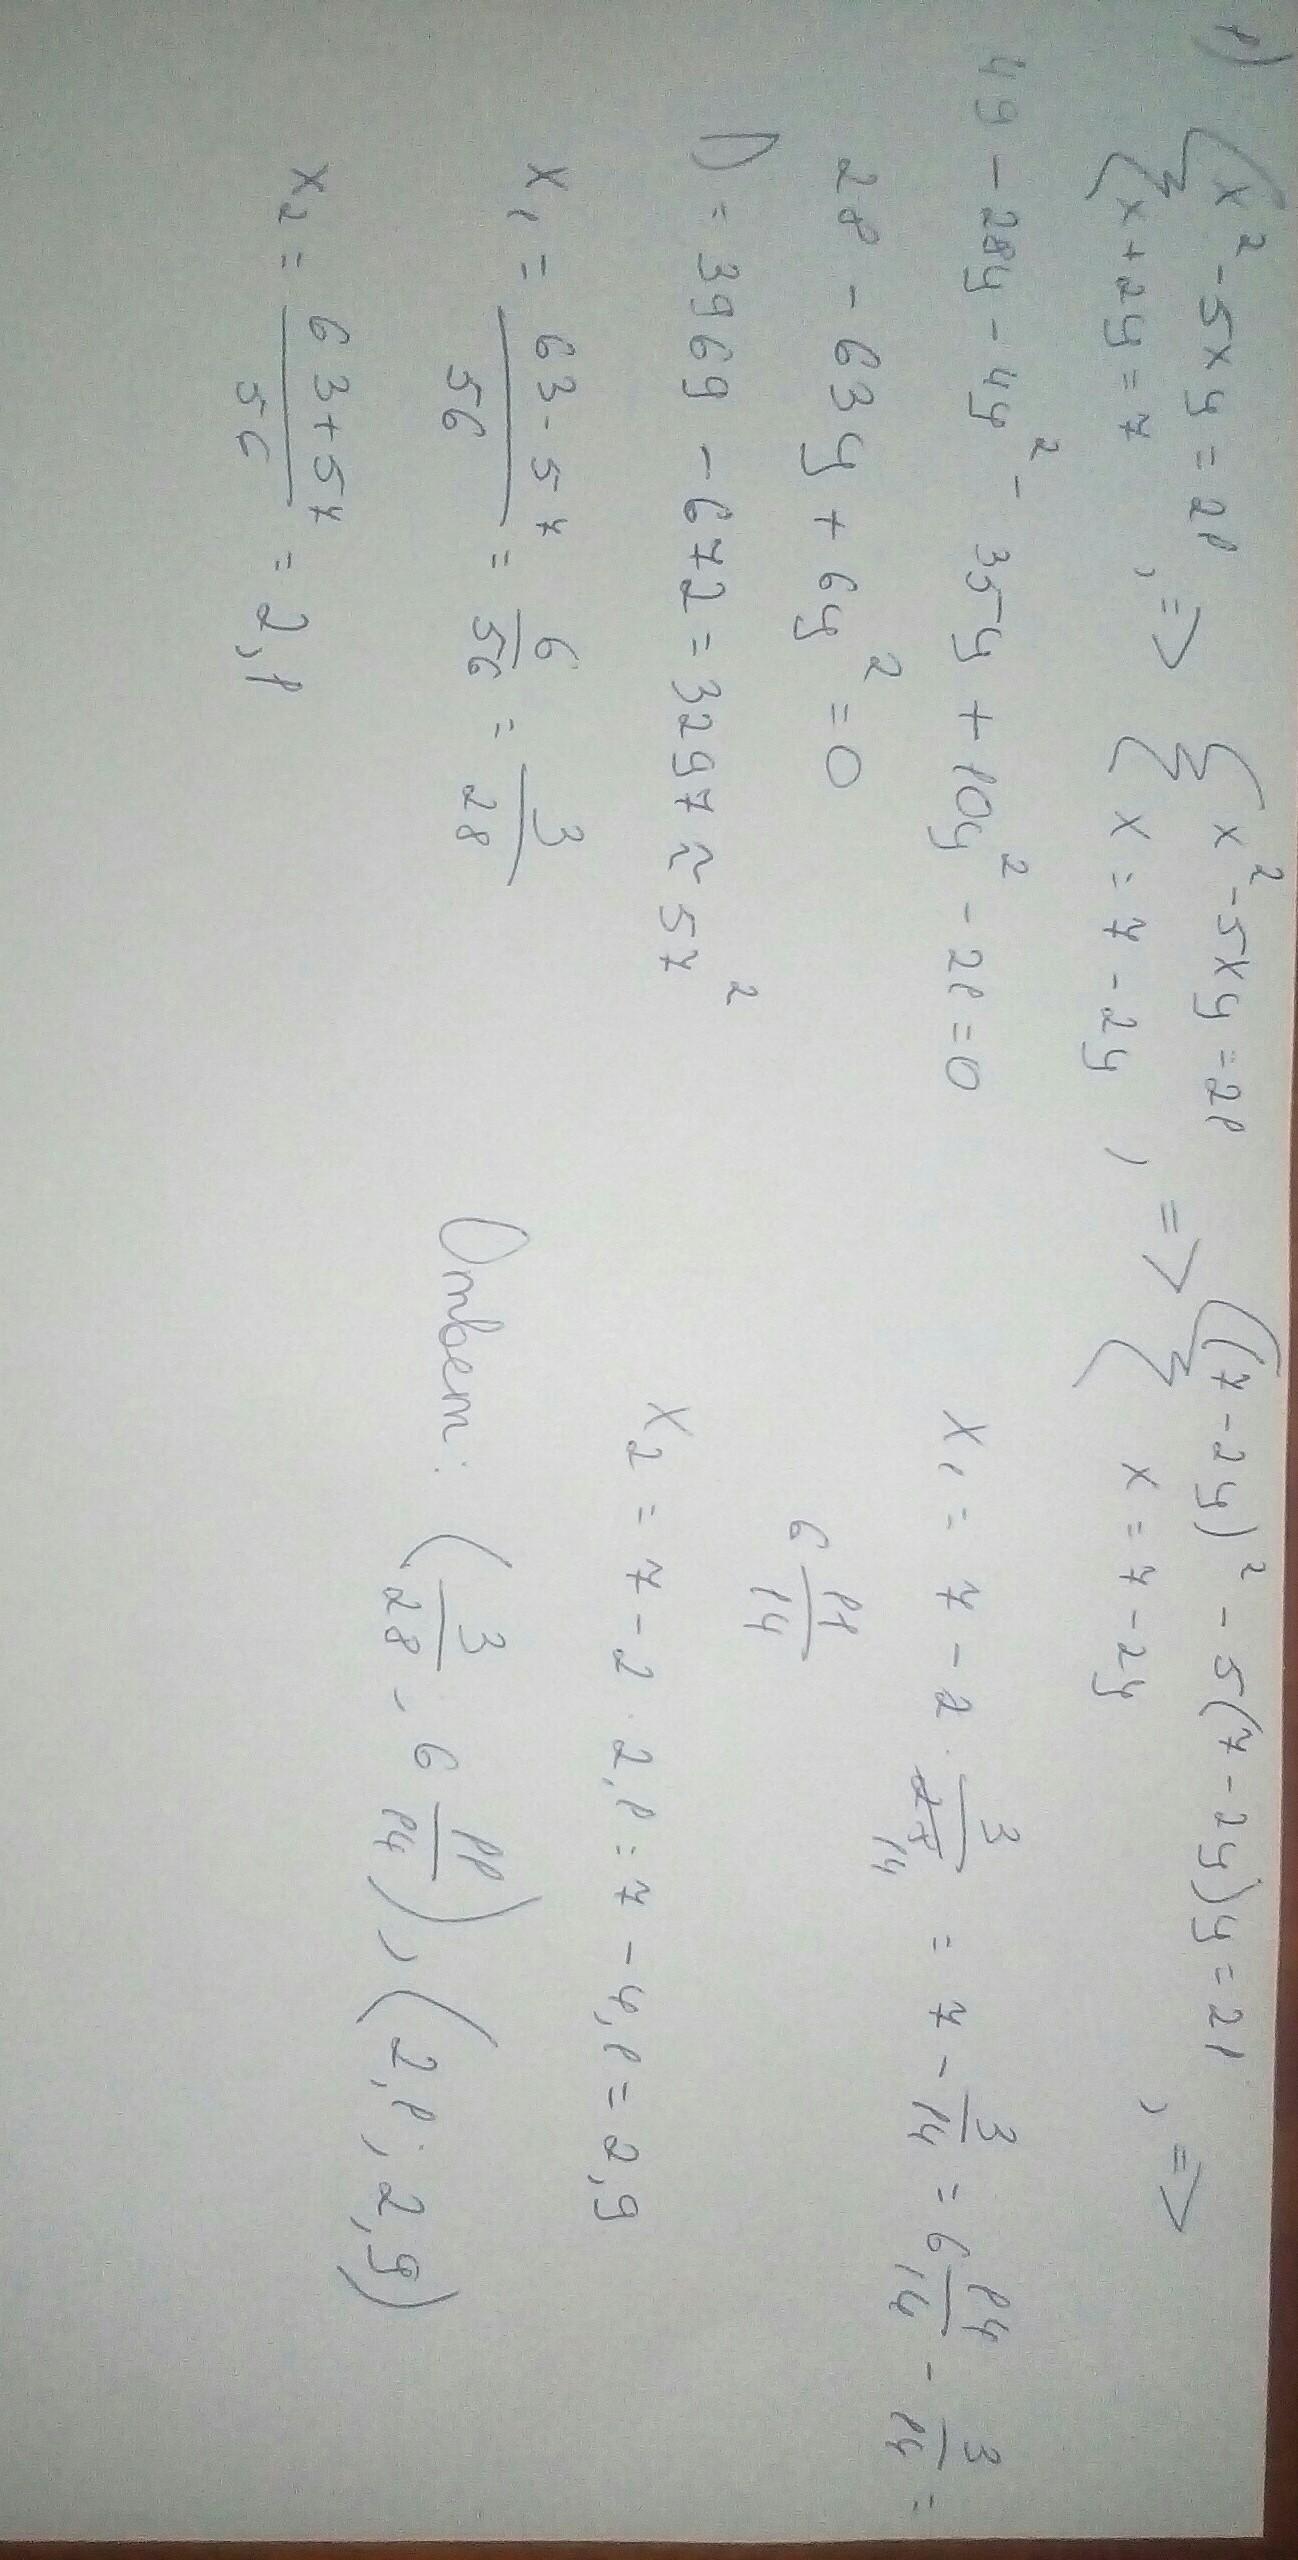 1) { x² - 5xy = 21 , => { x² - 5xy = 21 , => { (7 - 2y)² - 5(7 - 2y)y = 21 , =>
{ x + 2y = 7 { x = 7 - 2y { x = 7 - 2y
49 - 28y - 4y² - 35y + 10y² - 21 = 0
28 - 63y + 6y² = 0
D = 3969 - 672 = 3297 ≈ 57²
x₁ = (63 - 57)/56 = 6/56 = 3/28
x₂ = (63 + 57)/56 = 2,1
x₁ = 7 - 2 · 3/28 14 = 7 - 3/14 = 6 14/14 - 3/14 =
6 11/14
x₂ = 7 - 2 · 2,1 = 7 - 4,1 = 2,9
Ответ: (3/28 , 6 11/14), (2,1 ; 2,9)